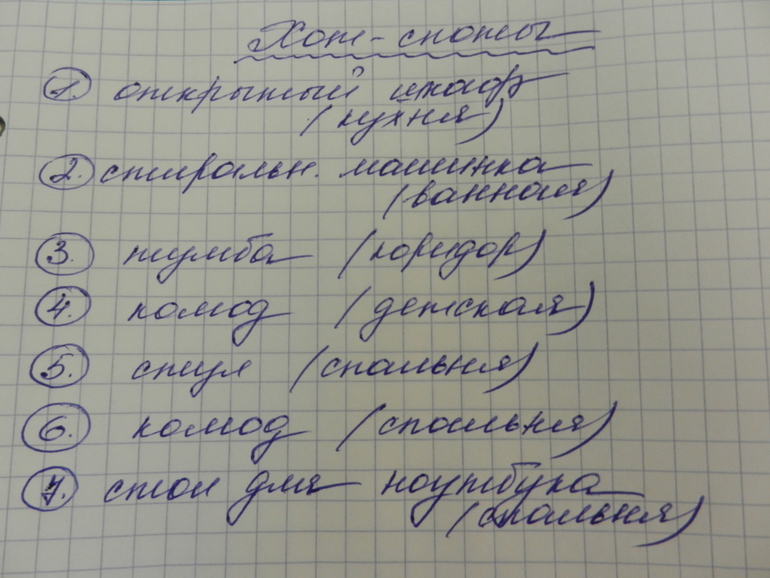 Хот-споты
1. открытый шкаф
(кухня)
2. стиральн. машинка
(ванная)
3. тумба (коридор)
4. комод (детская)
5. стул (спальня)
6. комод (спальня)
7. стол для ноутбука
(спальня)